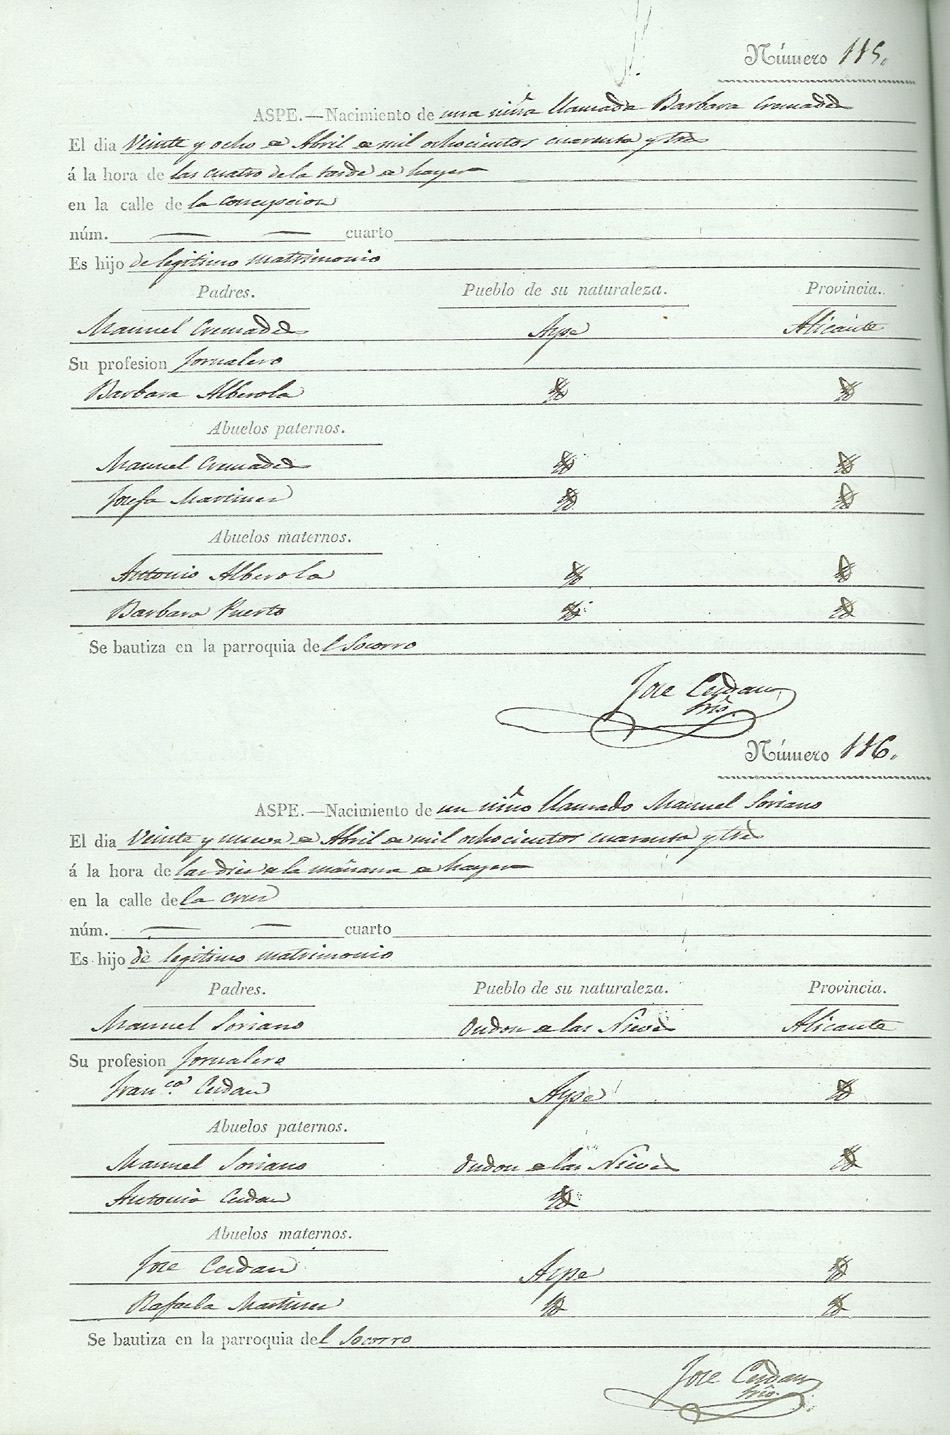 Número 115.
ASPE.—Nacimiento de una niña llamada Barbara Cremades
El dia Veinte y ocho de Abril de mil ochocientos cuarenta y tres
á la hora de las cuatro de la tarde de hayer
en la calle de la concepcion
núm. — — cuarto
Es hijo de legitimo matrimonio
Padres. Pueblo de su naturaleza. Provincia.
Manuel Cremades Aspe Alicante
Su profesion Jornalero
Barbara Alberola
Abuelos paternos.
Manuel Cremades
Josefa Martinez
Abuelos maternos.
Antonio Alberola
Barbara Puerto
Se bautiza en la parroquia del Socorro
Jose Cerdan
Srio.
Número 116.
ASPE.—Nacimiento de un niño llamado Manuel Soriano
El dia Veinte y nueve de Abril de mil ochocientos cuarenta y tres
á la hora de las diez de la mañana de hayer
en la calle de la cruz
núm. — — cuarto
Es hijo de legitimo matrimonio
Padres. Pueblo de su naturaleza. Provincia.
Manuel Soriano Ondon de las Nieves Alicante
Su profesion Jornalero
Franca. Cerdan Aspe
Abuelos paternos.
Manuel Soriano Ondon de las Nieves
Antonia Cerdan
Abuelos maternos.
Jose Cerdan Aspe
Rafaela Martinez
Se bautiza en la parroquia del Socorro
Jose Cerdan
Srio.